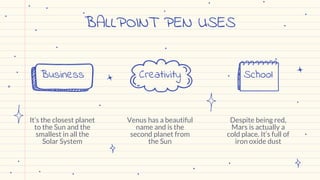 BALLPOINT PEN USES
Business
Creativity
School
It's the closest planet
to the Sun and the
smallest in all the
Solar System
Venus has a beautiful
name and is the
second planet from
the Sun
Despite being red,
Mars is actually a
cold place. It's full of
iron oxide dust